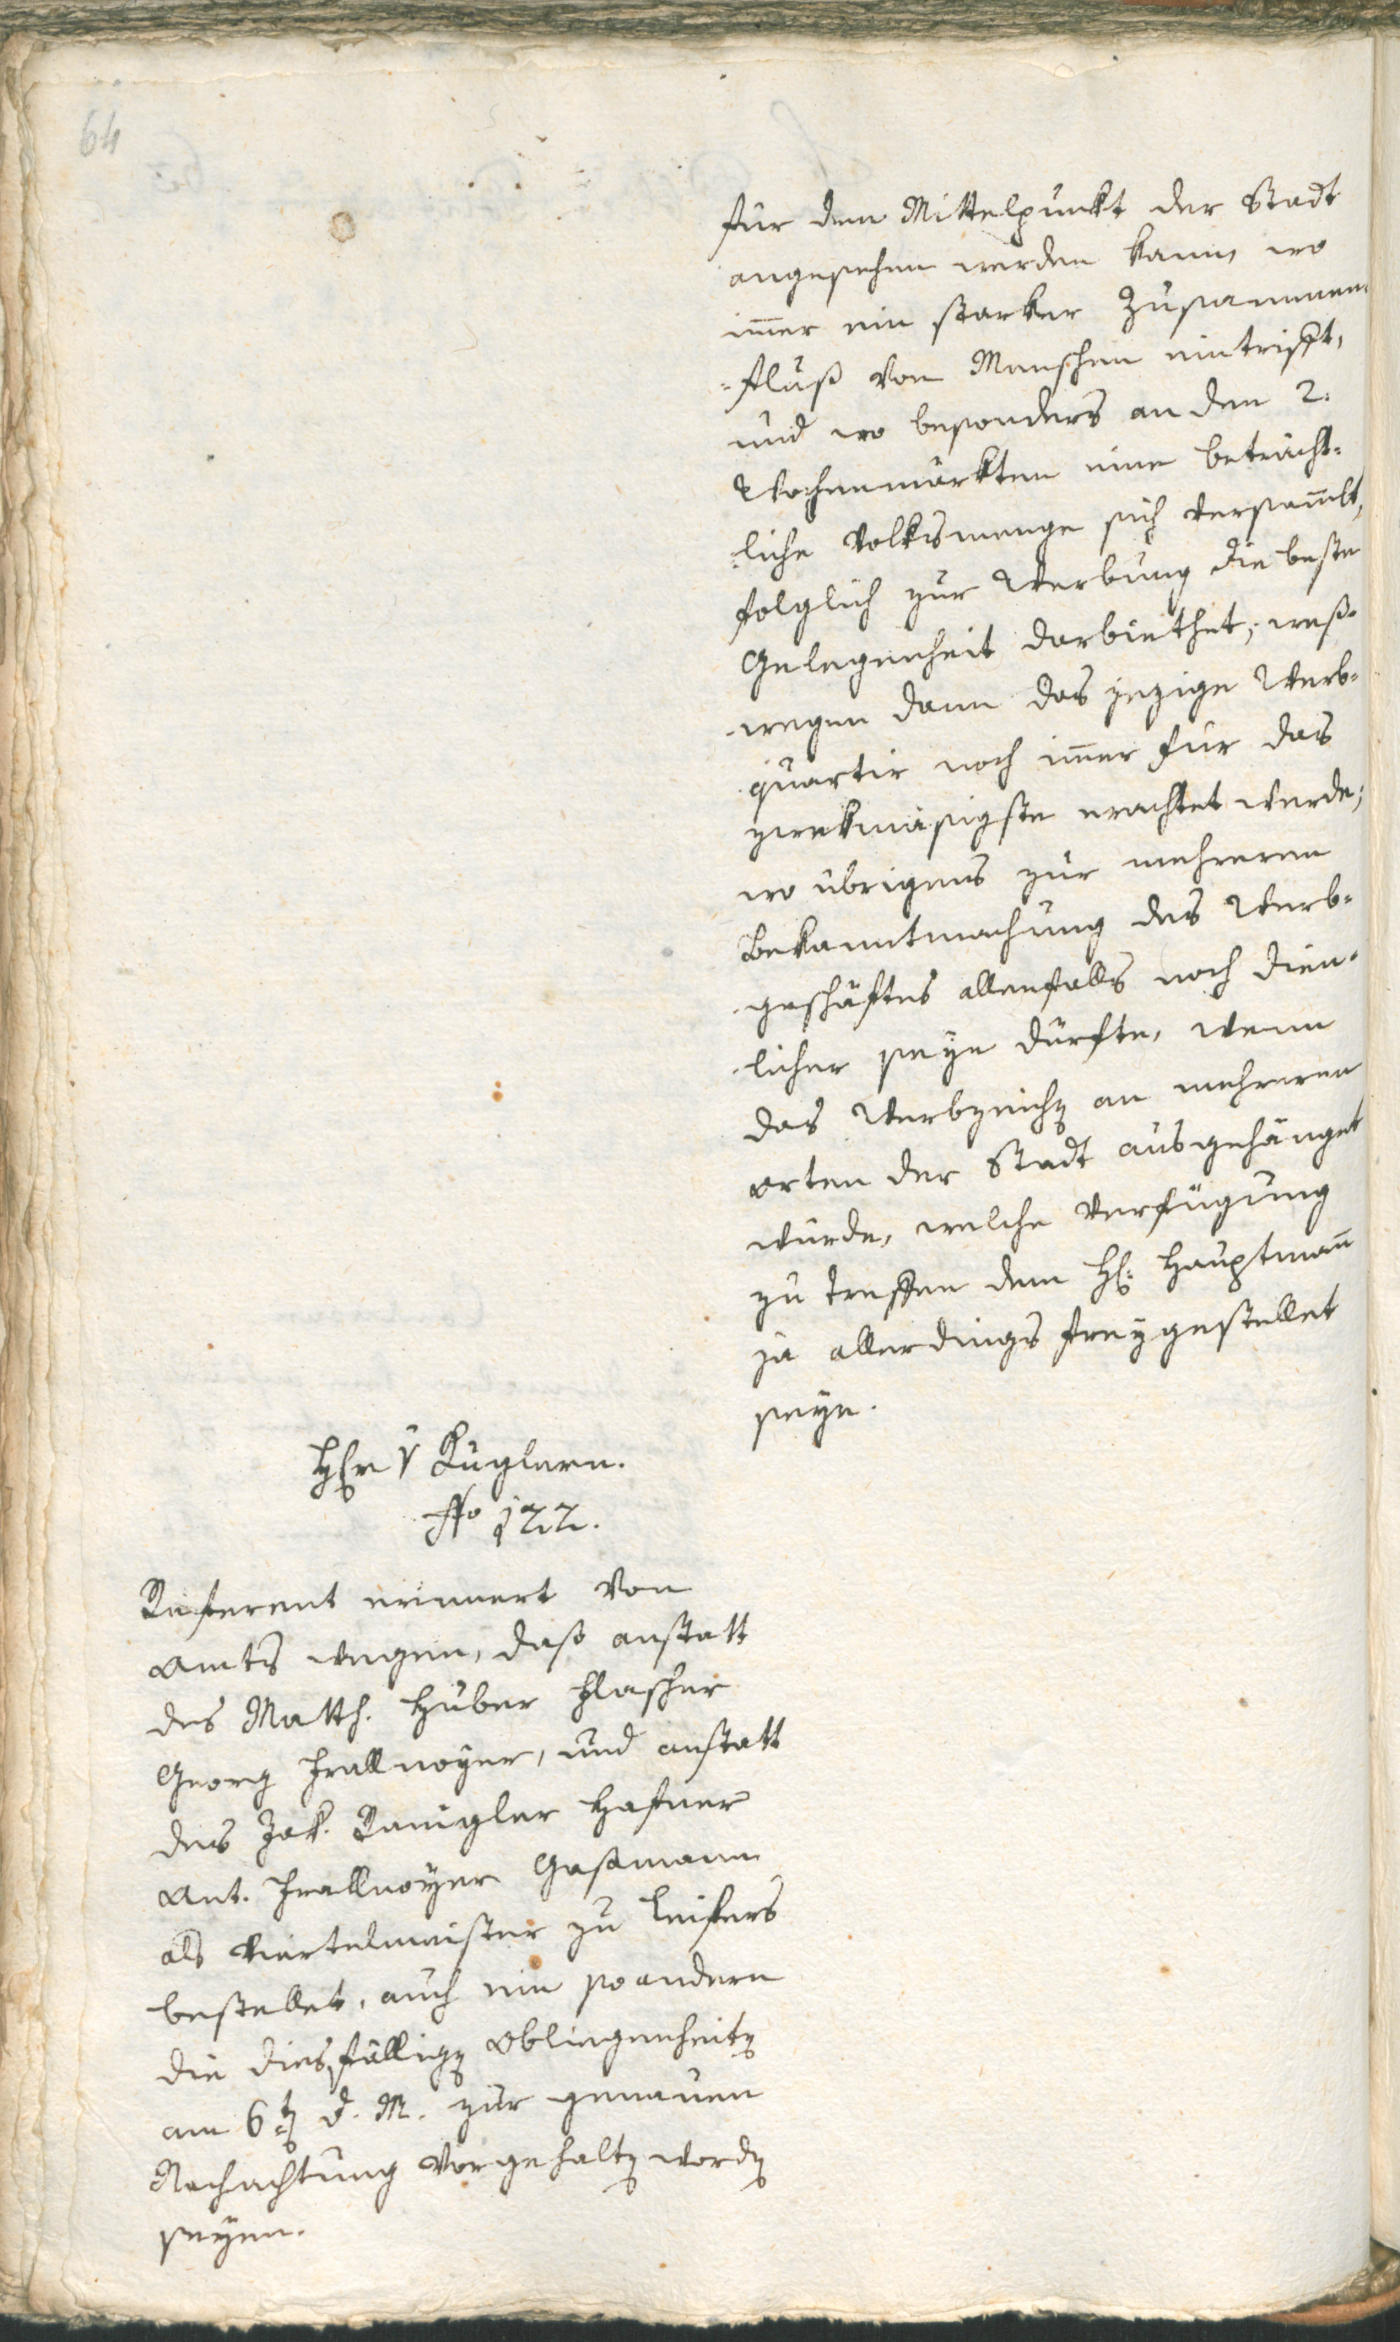 64
für dem Mittelpunkt der Stadt
angesehen werden kann, wo
im̄er ein starker Zusammen-
-fluß von Menschen eintrifft,
und wo besonders an den 2.
Wochenmärkten eine beträcht-
-liche Volksmenge sich versam̄elt,
folglich zur Werbung die beste
Gelegenheit darbiethet; weß-
-wegen dann das jezige Werb-
quartir noch im̄er für das
zwekmäsigste erachtet werde;
wo übrigens zur mehreren
Bekanntmachung des Werb-
-geschäftes allenfalls noch dien-
-licher seyn dürfte, wenn
das Werbzeichen an mehreren
Orten der Stadt ausgehänget
würde, welche Verfügung
zu treffen dem H: Hauptman̄
ja allerdings freygestellet
seye.
Her v Kuglern.
No 122.
Referent erinnert von
Amts wegen, daß anstatt
des Matth. Huber
Georg und anstatt
des Jak. Hafner
Ant. Gaßmann
als Viertelmeister zu Leifers
bestellet, auch ein so andern
die diesfälligen Obliegenheiten
am 6ten d. M. zur genauen
Nachachtung vorgehalten worden
seyen.